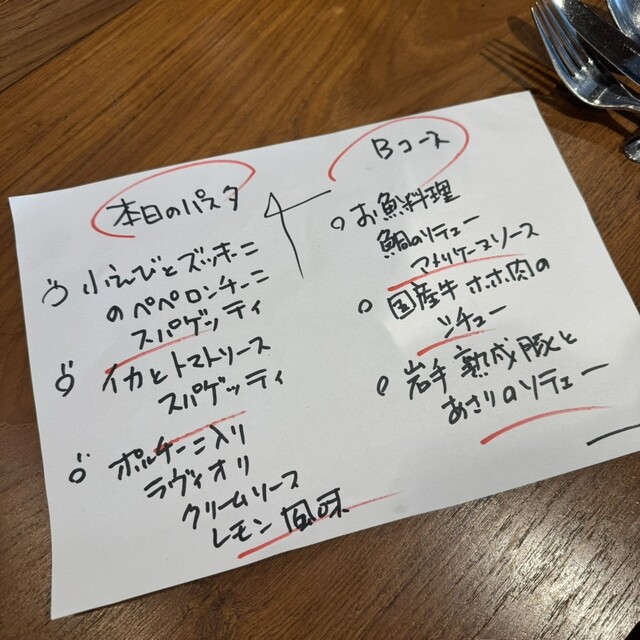 本日のパスタ
小えびとズッキーニ
のペペロンチーニ
スパゲッティ
イカとトマトソース
スパゲッティ
ポルチーニ入り
ラヴィオリ
クリームソース
レモン風味
Bコース
お魚料理
鯛のソテュー
アメリケーヌソース
国産牛ホホ肉の
シチュー
岩手熟成豚と
あさりのソテュー